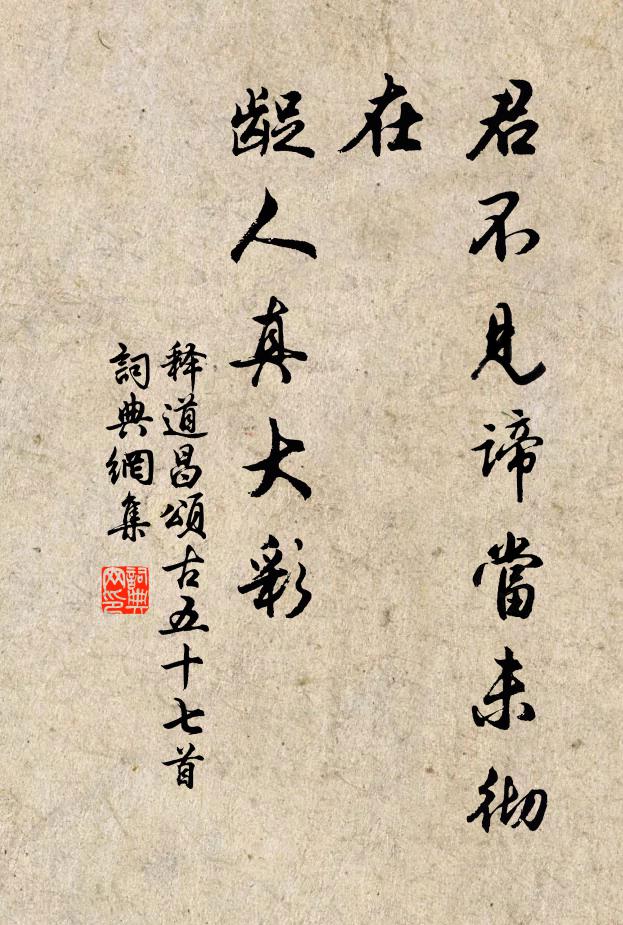 君不見諦當未彻
在
龊人真大彩
释道昌頌古五十七首
詞典網集
詞典
网印